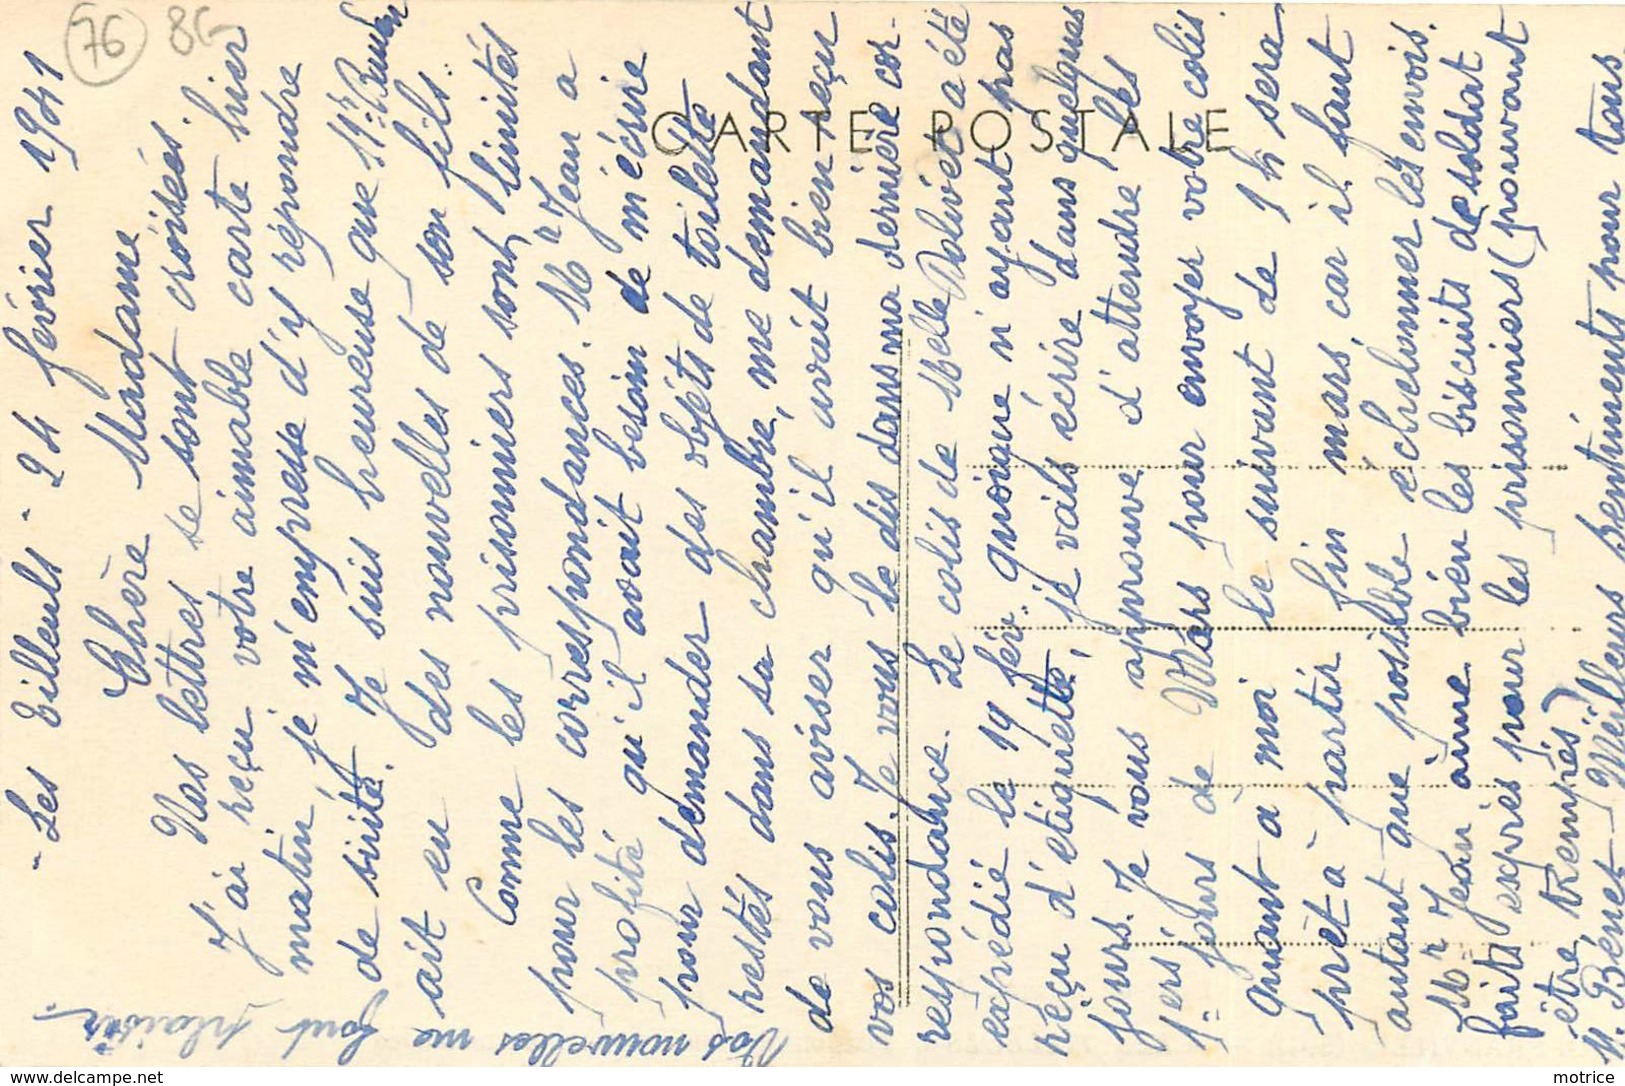 76 86
- Les Tilleuls - 24 février 1941
Chère Madame
Nos lettres se sont croisées.
J'ai reçu votre aimable carte hier
matin, je m'empresse d'y répondre
de suite. Je suis heureuse que Mr
ait eu des nouvelles de son fils.
Comme les prisonniers sont limités
pour les correspondances. Mr Jean a
profité qu'il avait besoin de m'écrire
pour demander des objets de toilette
restés dans sa chambre, me demandant
de vous aviser qu'il avait bien reçu
vos colis. Je vous le dis dans ma dernière cor-
respondance. Le colis de Melle Dolivet a été
expédié le 19 fév: quoique n'ayant pas
reçu d'étiquette, je vais écrire dans quelques
jours. Je vous approuve d'attendre les
1ers jours de Mars pour envoyer votre colis.
Quant à moi le suivant de 1k sera
prêt à partir fin mars, car il faut
autant que possible échelonner les envois.
Mr Jean aime bien les biscuits de soldat
faits exprès pour les prisonniers (pouvant
être trempés)
M. Bénet - Meilleurs sentiments pour tous
Vos nouvelles me font plaisir.
CARTE POSTALE
motrice